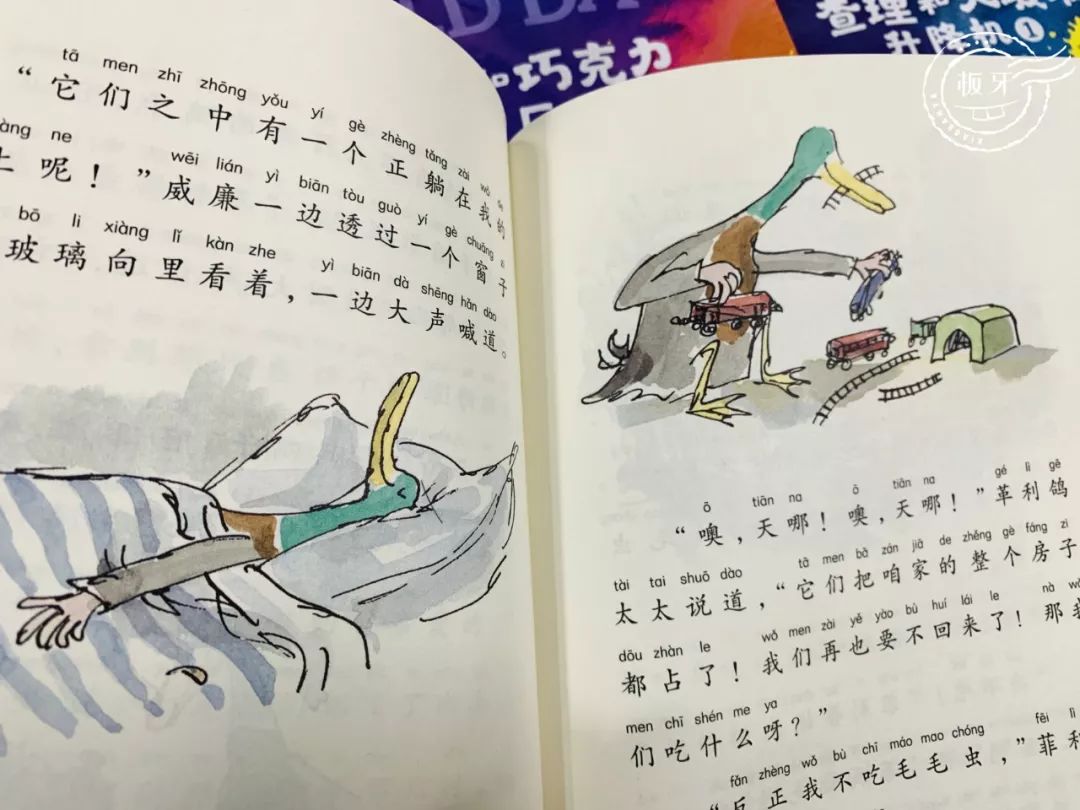 和巧克力
查理和大玻
升降机①
板牙
tā men zhī zhōng yǒu yí gè zhèng tǎng zài wǒ de
“它们之中有一个正躺在我的
ne wēi lián yì biān tòu guò yí gè chuāng zi
上呢！”威廉一边透过一个窗子
bō li xiàng lǐ kàn zhe yì biān dà shēng hǎn dào
玻璃向里看着，一边大声喊道。
ō tiān na ō tiān na gé lì gē
“噢，天哪！噢，天哪！”革利鸽
tài tai shuō dào tā men bǎ zán jiā de zhěng gè fáng zi
太太说道，“它们把咱家的整个房子
dōu zhàn le wǒ men zài yě yào bù huí lái le nà wǒ
都占了！我们再也要不回来了！那我
men chī shén me ya
们吃什么呀？”
fǎn zhèng wǒ bù chī máo mao chóng fēi lì
“反正我不吃毛毛虫，”菲利